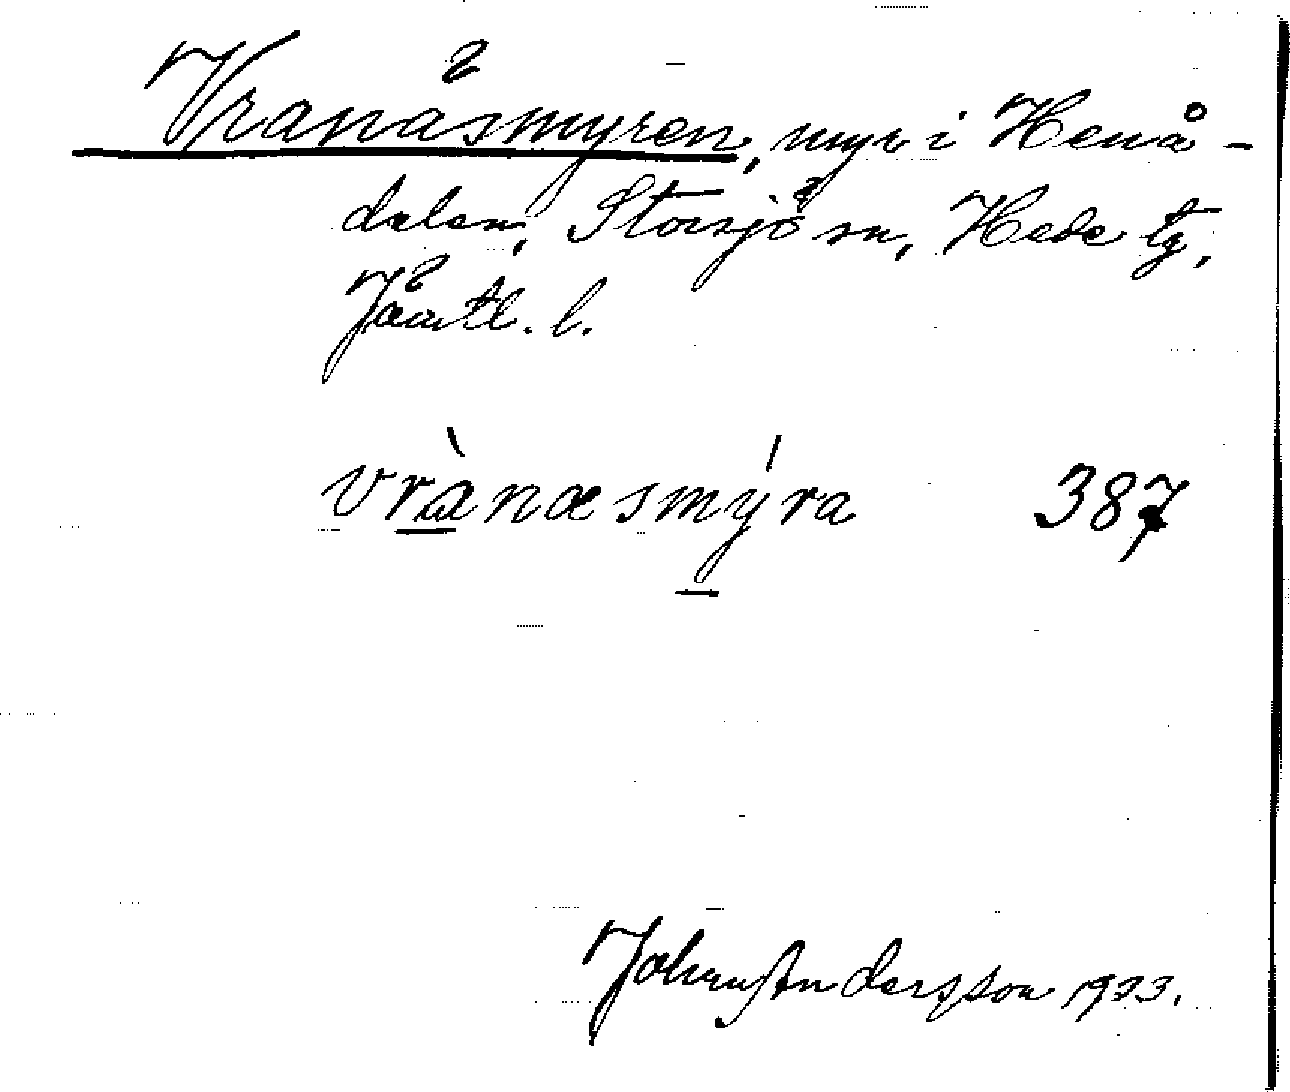 Vranäsmyren, myr i Henvå-
dalen, Storsjö sn, Hede tg,
Jämtl. l.
vrànæsmýra 387
Johan Andersson 1933.